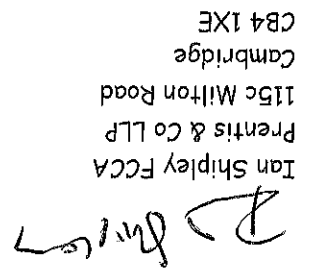 Ian Shipley FCCA
Prentis & Co LLP
115c Milton Road
Cambridge
CB4 1XE